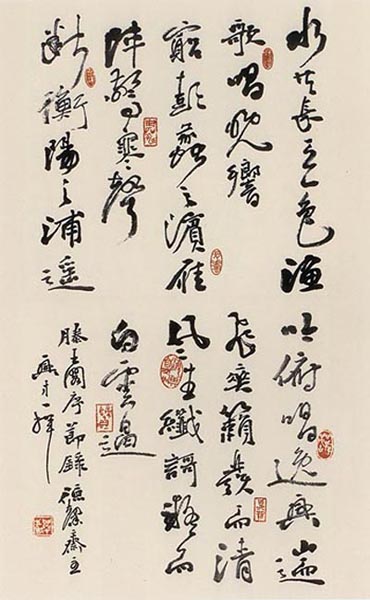 水共長天一色漁
歌唱晚響
窮彭蠡之濱雁
陣驚寒聲
斷衡陽之浦遙
吟俯唱逸興遄
飛爽籟發而清
風生纖謌凝而
白雲遏
滕王閣序節錄 齋主